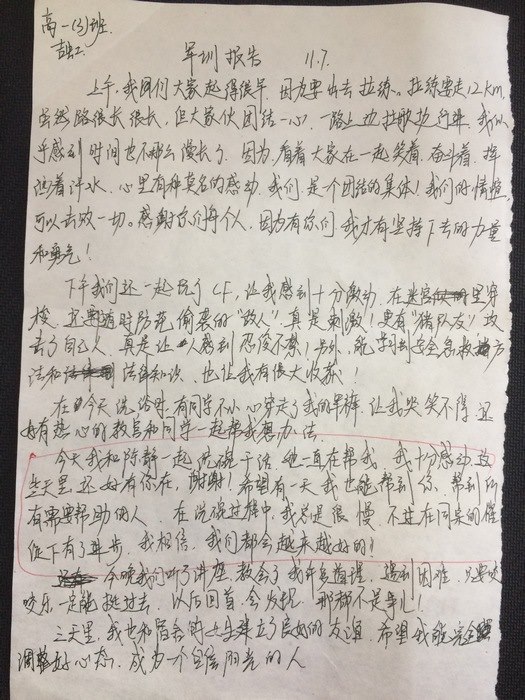 高一(3)班
军训报告 11.7.
上午,我团们大家起得很早,因为要出去拉练。拉练要走12km,
虽然路很长很长,但大家伙团结一心,一路上边拉歌边行进,我似
乎感到时间也不那么漫长了。因为,看着大家在一起笑着,奋斗着,挥
洒着汗水,心里有种莫名的感动。我们是个团结的集体!我们的情谊,
可以击败一切。感谢你们每个人,因为有你们我才有坚持下去的力量
和勇气!
下午我们还一起玩了CF,让我感到十分激动,在迷宫里穿
梭,还要随时防范偷袭的“敌人”真是刺激!更有“猪队友”攻
击了自己人,真是让人感到忍俊不禁!另外,能学到安全急救方
法和法律知识,也让我有很大收获!
在今天洗浴时,有同学不小心穿走了我的军裤,让我哭笑不得,还
好有热心的教官和同学一起帮我想办法。
今天我和陈静一起洗碗干活,她一直在帮我,我十分感动,这
三天里还好有你在,谢谢!希望有一天我也能帮到你,帮到所
有需要帮助的人。在洗碗过程中,我总是很慢,不过在同呆的催
促下有了进步,我相信,我们都会越来越好的!
今晚我们听了讲座,教会了我许多道理,遇到困难,只要咬
咬牙一定能挺过去,以后回首,会发现,那都不是事儿!
三天里,我也和宿舍的七朵建立了良好的友谊,希望我能完全
调整好心态,成为一个自信阳光的人